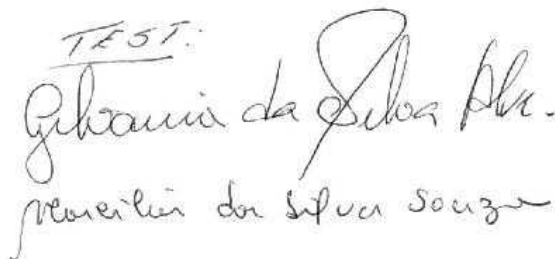 TEST:
Gilvania da Silva Alv.
Marcilia da Silva Souza